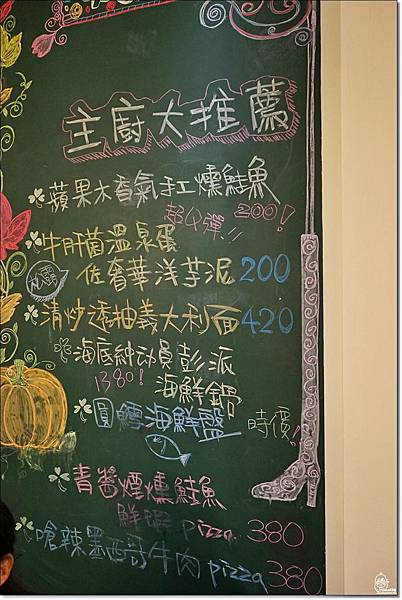 主廚大推薦
蘋果木香氣手工燻鮭魚
超Q彈!! 200!
牛肝菌溫泉蛋
佐奢華洋芋泥 200
清炒透抽義大利面 420
海底総动員澎派
1380! 海鮮鍋
圓鱈海鮮盤 時價!
青醬煙燻鮭魚
鮮蝦 pizza. 380
嗆辣墨西哥牛肉 pizza 380